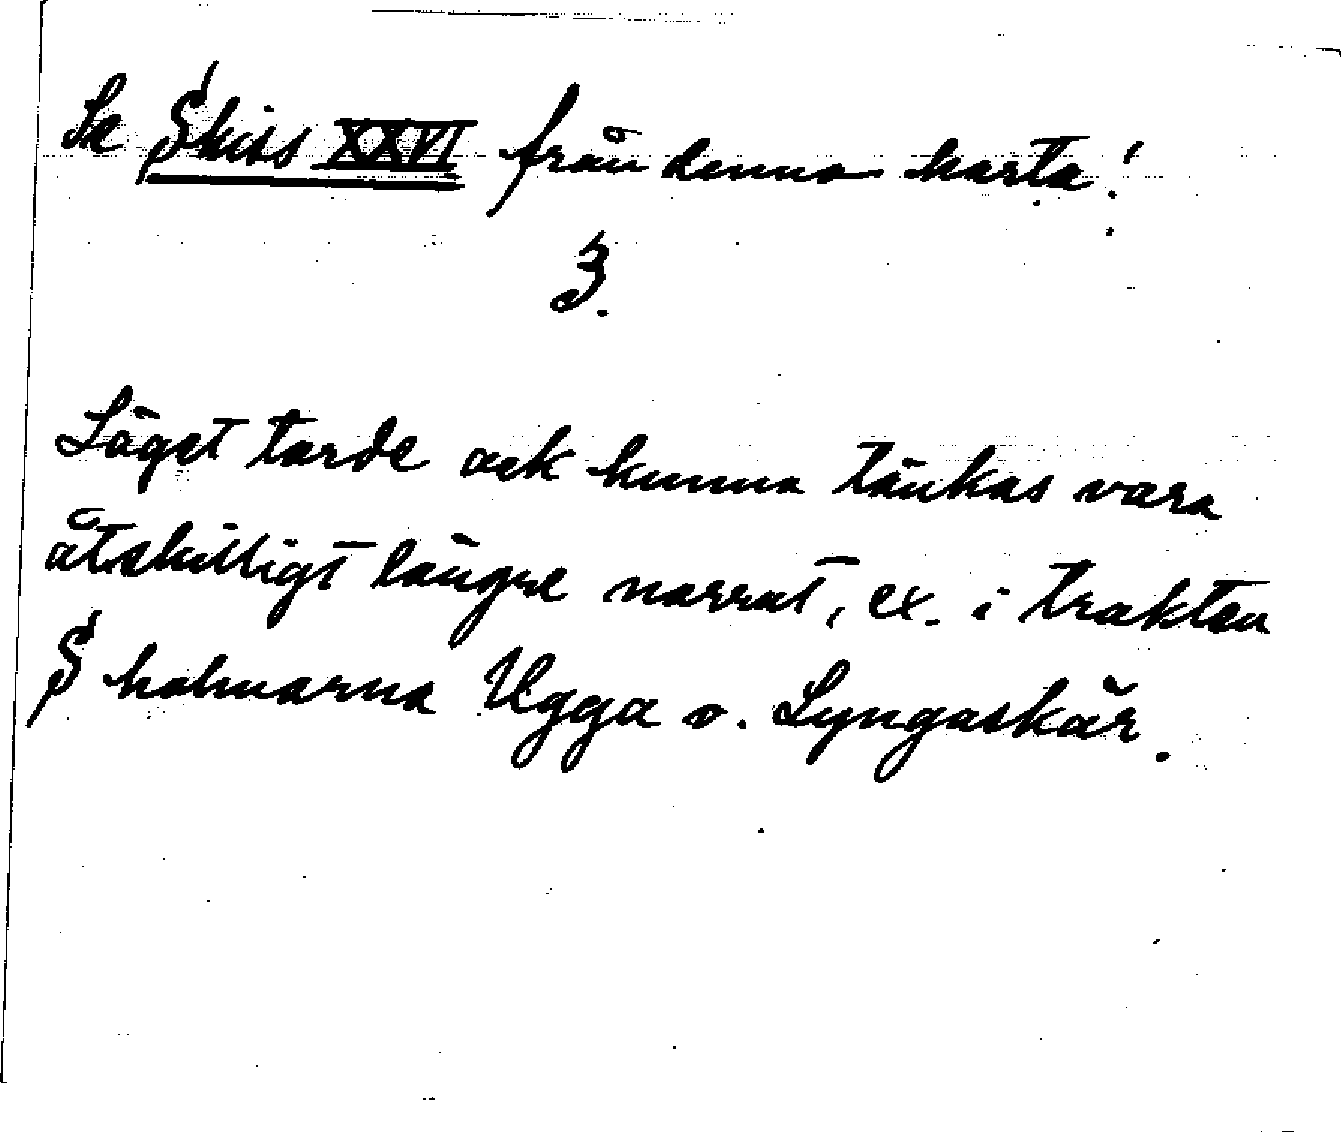 Se Skiss XXVI från denna karta!
3.
Läget torde ock kunna tänkas vara
åtskilligt längre norrut, ex. i trakten
§ holmarna Ugga o. Lyngaskär.